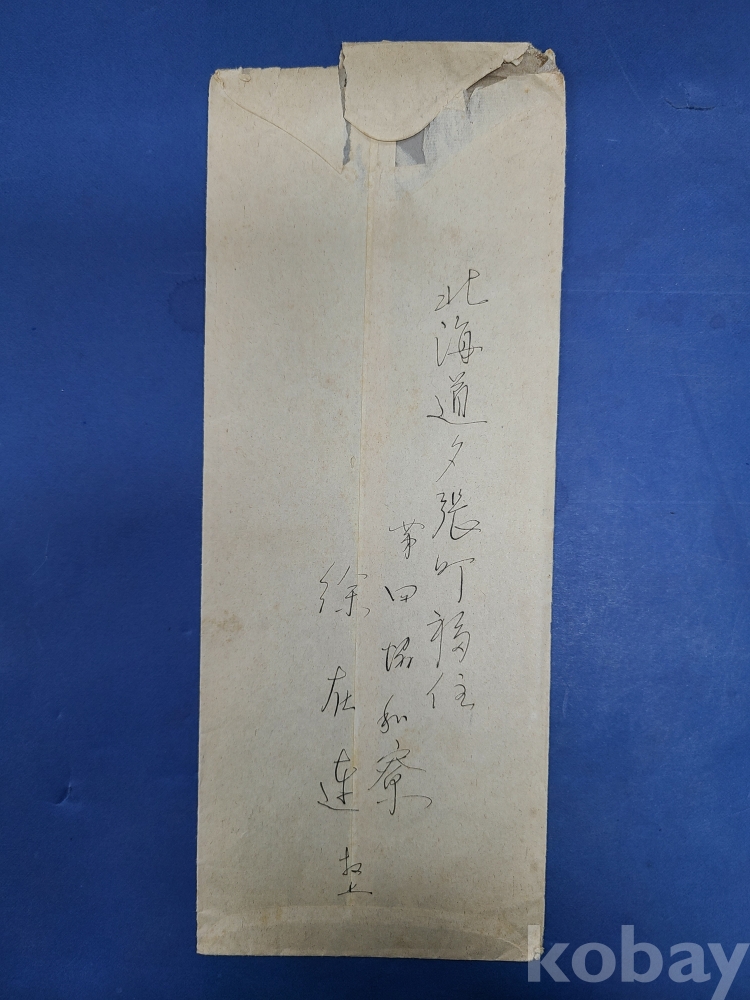 北海道夕張町福住
第四協和寮
徐在連
kobay